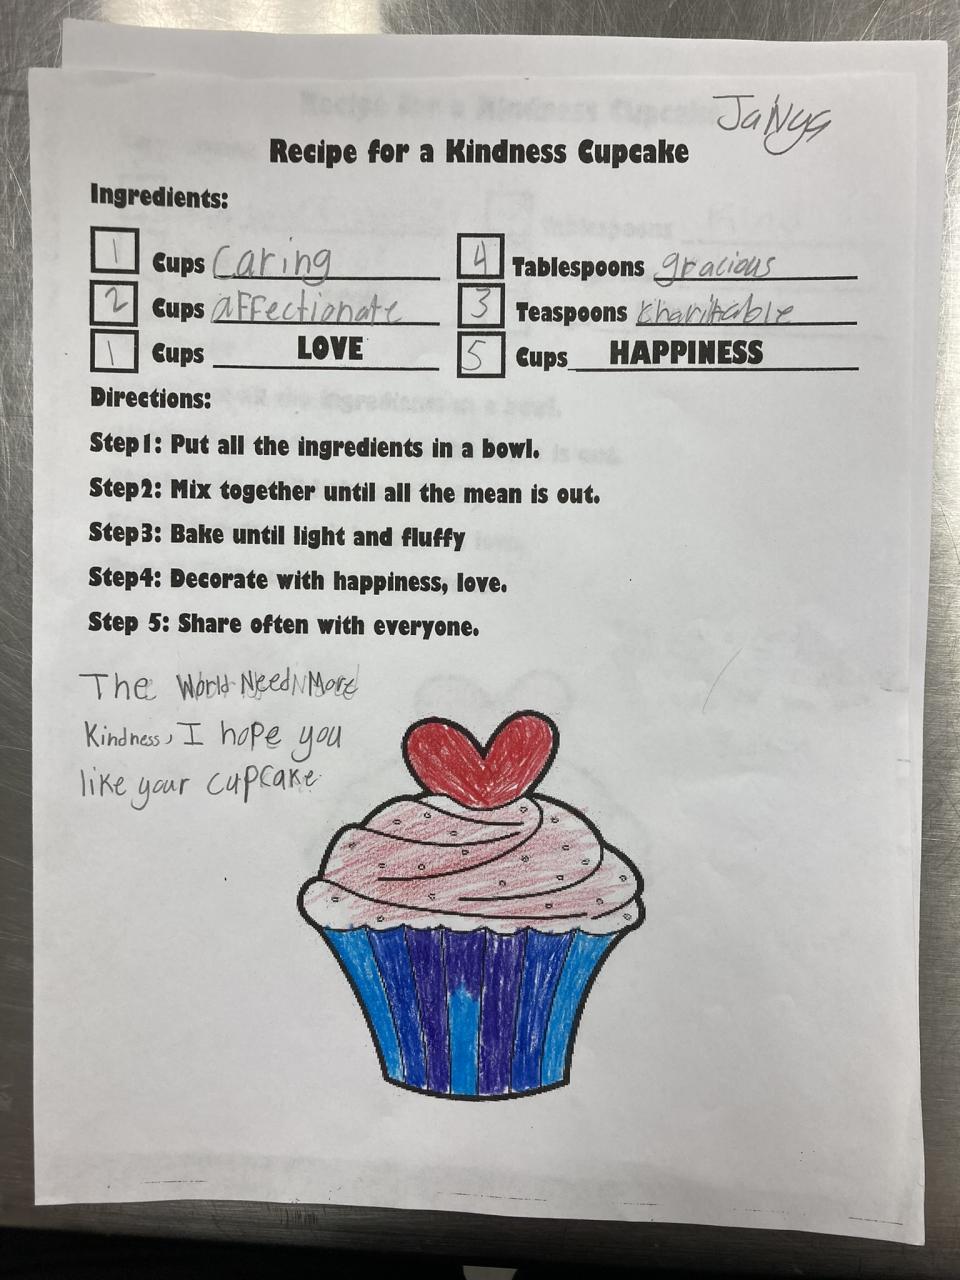 JaNya
Recipe for a Kindness Cupcake
Ingredients:
1 Cups Caring 4 Tablespoons gracious
2 Cups affectionate 3 Teaspoons charitable
1 Cups LOVE 5 Cups HAPPINESS
Directions:
Step1: Put all the ingredients in a bowl.
Step2: Mix together until all the mean is out.
Step3: Bake until light and fluffy
Step4: Decorate with happiness, love.
Step 5: Share often with everyone.
The World Need More
Kindness, I hope you
like your cupcake.